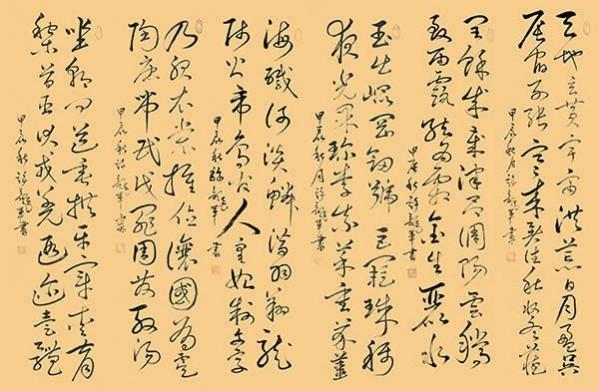 天地玄黃宇宙洪荒日月盈昃
辰宿列張寒來暑往秋收冬藏
甲辰秋月
閏餘成歲律呂調陽雲騰
致雨露結為霜金生麗水
甲辰秋
玉出崑岡劍號巨闕珠稱
夜光果珍李柰菜重芥薑
甲辰秋月
海鹹河淡鱗潛羽翔龍
師火帝鳥官人皇始制文字
甲辰秋
乃服衣裳推位讓國有虞
陶唐弔民伐罪周發殷湯
甲辰秋
坐朝問道垂拱平章愛育
黎首臣伏戎羌遐邇壹體
甲辰秋